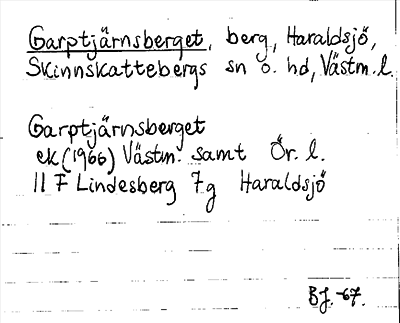 Garptjärnsberget, berg, Haraldsjö,
Skinnskattebergs sn o. hd, Västm.l.
Garptjärnsberget
ek (1966) Västm. samt Ör. l.
11 F Lindesberg 7g Haraldsjö
BJ. -67.